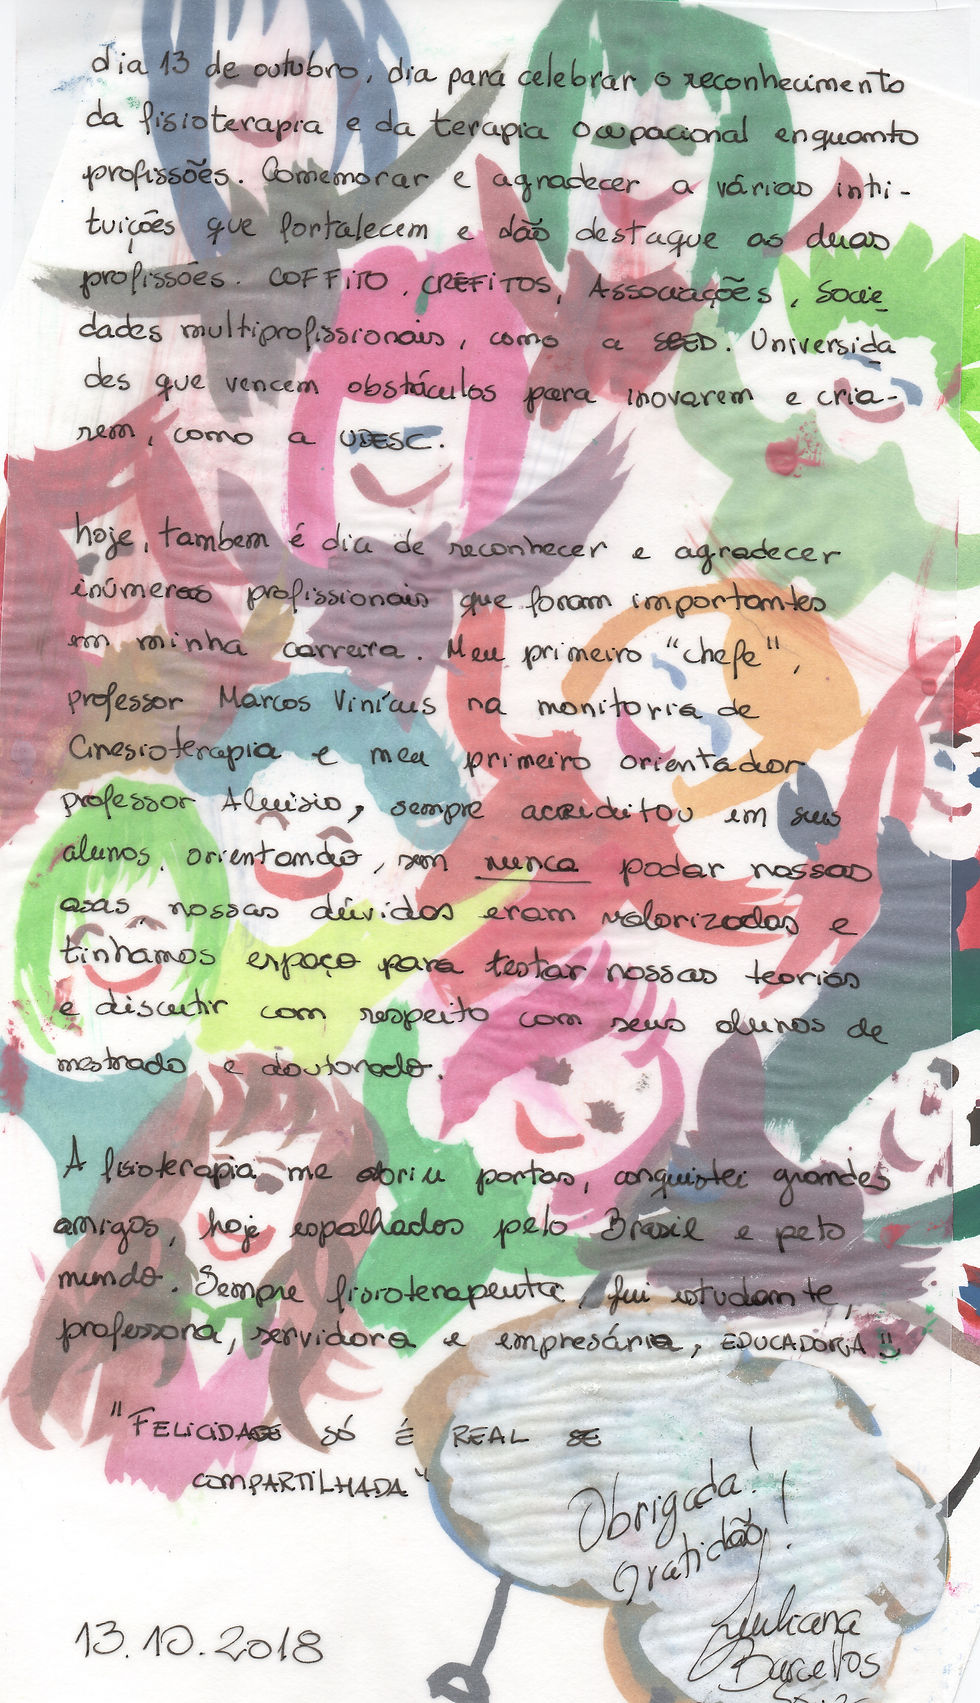 dia 13 de outubro, dia para celebrar o reconhecimento
da fisioterapia e da terapia ocupacional enquanto
profissões. Comemorar e agradecer a várias inti-
tuições que fortalecem e dão destaque as duas
profissões. COFFITO, CREFITOS, ASSOCIAÇÕES, Socie
dades multiprofissionais, como a SBED. Universida
des que vencem obstáculos para inovarem e cria-
rem, como a UDESC.
hoje, tambem é dia de reconhecer e agradecer
inúmeros profissionais que foram importantes
em minha carreira. Meu primeiro "chefe",
professor Marcos Vinícius na monitoria de
Cinesioterapia e meu primeiro orientador
professor Aluisio, sempre acreditou em seus
alunos, orientando, sem nunca podar nossas
asas, nossas dúvidas eram valorizadas e
tinhamos espaço para testar nossas teorias
e discutir com respeito com seus alunos de
mestrado e doutorado.
A fisioterapia me abriu portas, conquistei grandes
amigos, hoje espalhados pelo Brasil e pelo
mundo. Sempre fisioterapeuta, fui estudante,
professora, servidora e empresária, EDUCADORA!!
"FELICIDADE SÓ É REAL SE
COMPARTILHADA"
Obrigada!
Gratidão!
Juliana
Barcellos
13.10.2018